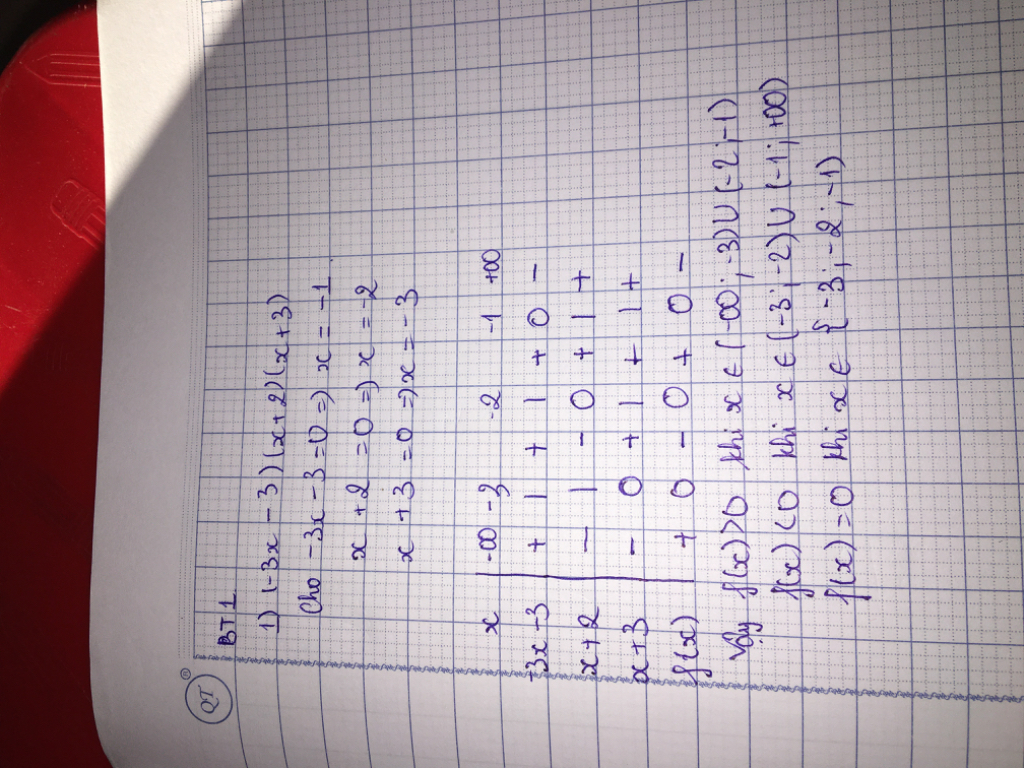 QT ®
BT1
1) (-3x - 3)(x+2)(x+3)
Cho -3x - 3 = 0 => x = -1
x + 2 = 0 => x = -2
x + 3 = 0 => x = -3
x -∞ -3 -2 -1 +∞
-3x-3 + | + | + 0 -
x+2 - | - 0 + | +
x+3 - 0 + | + | +
f(x) + 0 - 0 + 0 -
Vậy f(x) > 0 khi x ∈ (-∞; -3) ∪ (-2; -1)
f(x) < 0 khi x ∈ (-3; -2) ∪ (-1; +∞)
f(x) = 0 khi x ∈ {-3; -2; -1)